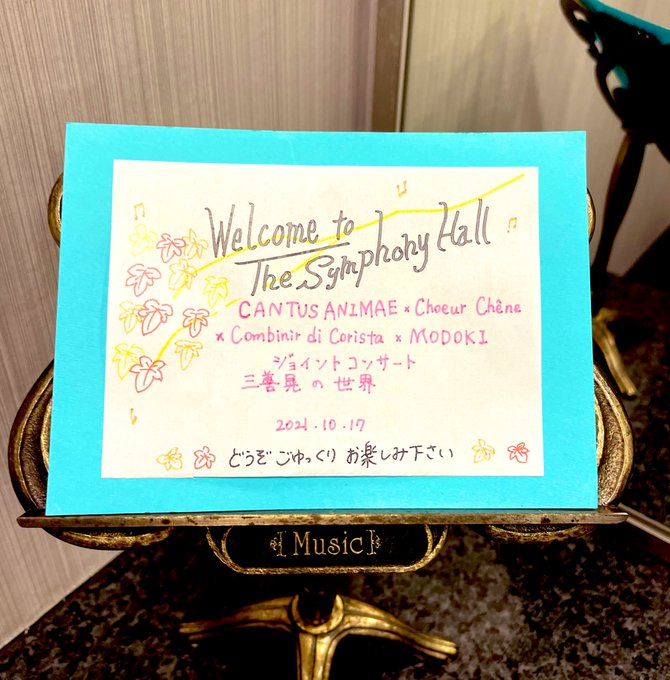 Welcome to
The Symphony Hall
CANTUS ANIMAE × Choeur Chêne
× Combinir di Corista × MODOKI
ジョイントコンサート
三善晃の世界
2021.10.17
どうぞごゆっくりお楽しみ下さい
[Music]